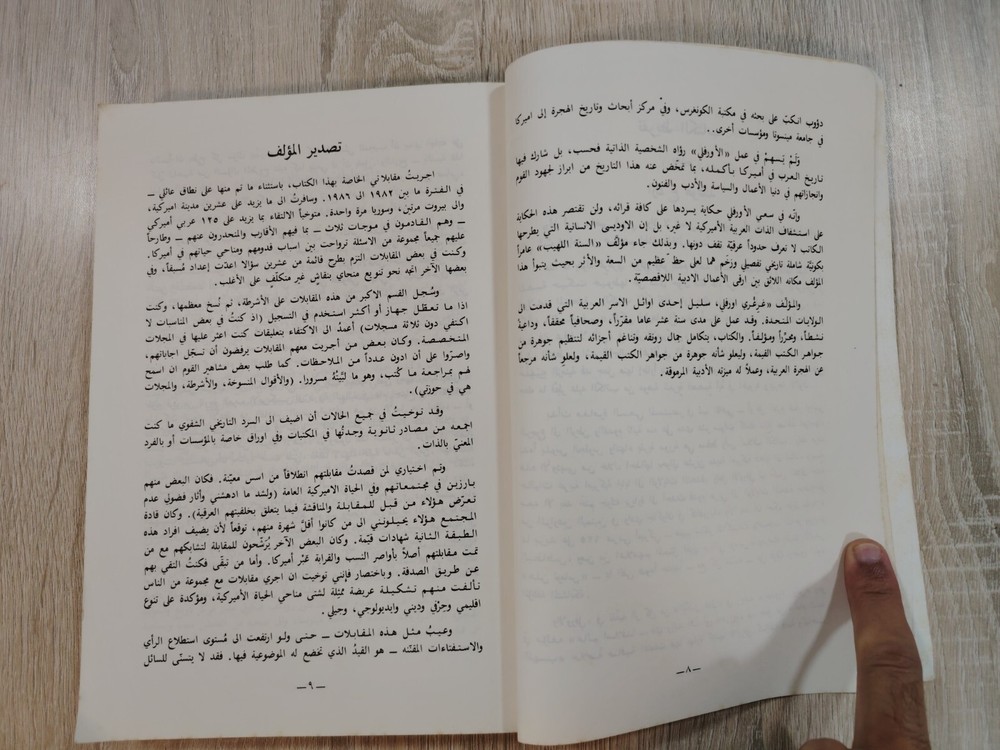 دؤوب انكبّ على بحثه في مكتبة الكونغرس، وفي مركز أبحاث وتاريخ الهجرة إلى اميركا
في جامعة مينسوتا ومؤسسات أخرى..
ولَمْ يُسهمْ في عمل «الأورفلي» رؤاه الشخصية الذاتية فحسب، بل شارك فيها
تاريخ العرب في أميركا بأكمله، بما تمخّض عنه هذا التاريخ من ابراز لجهود القوم
وانجازاتهم في دنيا الأعمال والسياسة والأدب والفنون.
وإنه في سعي الأورفلي حكاية يسردها على كافة قرائه، ولن تقتصر هذه الحكاية
على استشفاف الذات العربية الأميركية لا غير، بل إن الاوديسى الانسانية التي يطرحها
الكاتب لا تعرف حدوداً عرقيّة تقف دونها. وبذلك جاء مؤلفُ «السنة اللهيب» عامراً
بكونيّة شاملة تاريخي تفصيلي وزخم هما لعلى حظ عظيم من السعة والأثر بحيث يتبوأ هذا
المؤلف مكانه اللائق بين ارقى الأعمال الادبية اللاقصصيّة.
والمؤلف «غرغري اورفلي، سليل إحدى اوائل الاسر العربية التي قدمت الى
الولايات المتحدة. وقد عمل على مدى ستة عشر عاما مقرّراً، وصحافياً محققاً، وداعيةً
نشطاً، ومحرّراً ومؤلفاً. والكتاب، بتكامل جمال رونقه وتناغم أجزائه لتنظيم جوهرة من
جواهر الكتب القيمة، وليعلو شأنه جوهرة من جواهر الكتب القيمة، ولعلو شأنه مرجعاً
عن الهجرة العربية، وعملاً له ميزته الأدبية المرموقة.
ــ ٨ ــ
تصدير المؤلف
اجريتُ مقابلاتي الخاصة بهذا الكتاب، باستثناء ما تم منها على نطاق عائلي ــ
في الفترة ما بين ١٩٨٢ الى ١٩٨٦. وسافرتُ الى ما يزيد على عشرين مدينة اميركية،
والى بيروت مرتين، وسوريا مرة واحدة. متوخياً الالتقاء بما يزيد على ١٢٥ عربي أميركي
ــ وهم القادمون في موجات ثلاث ــ بما فيهم الأقارب والمتحدرون عنهم ــ وطارحاً
عليهم جميعاً مجموعة من الاسئلة تراوحت بين اسباب قدومهم ومناحي حياتهم في أميركا.
وكنت في بعض المقابلات التزم بطرح قائمة من عشرين سؤالا اعدّت إعداد مُسبقاً، وفي
بعضها الآخر اتجه نحو تنويع منحاي بنقاشٍ غير متكلّفٍ على الأغلب.
وسُجل القسم الاكبر من هذه المقابلات على الأشرطة، ثم نُسخ معظمها، وكنت
اذا ما تعطّل جهاز أو أكثر استخدم في التسجيل (اذ كنتُ في بعض المناسبات لا
اكتفي دون ثلاثة مسجلات) أعمدُ الى الاكتفاء بتعليقات كنت اعثر عليها في المجلات
المتخصصة. وكان بعض من أجريت معهم المقابلات يرفضون أن تسجّل اجاباتهم،
واصرّوا على أن ادون عدداً من الملاحظات. كما طلب بعض مشاهير القوم ان اسمح
لهم بمراجعة ما كُتب، وهو ما لبّيتُهُ مسرورا. (والأقوال المنسوخة، والأشرطة، والمجلات
هي في حوزتي).
وقد توخيتُ في جميع الحالات أن اضيف الى السرد التاريخي الشفوي ما كنت
اجمعه من مصادر ثانوية وجدتُها في المكتبات وفي اوراق خاصة بالمؤسسات أو بالفرد
المعنيّ بالذات.
وتم اختياري لمن قصدتُ مقابلتهم انطلاقاً من اسس معيّنة. فكان البعض منهم
بارزين في مجتمعاتهم وفي الحياة الاميركية العامة (ولشد ما ادهشني وأثار فضولي عدم
تعرّض هؤلاء من قبل للمقابلة والمناقشة فيما يتعلق بخلفيتهم العرقية). وكان قادة
المجتمع هؤلاء يحيلونني الى من كانوا أقلَّ شهرة منهم، توقعاً لأن يضيف افراد هذه
الطبقة الثانية شهادات قيّمة. وكان البعض الآخر يُرَشَّحون للمقابلة لتشابكهم مع من
تمت مقابلتهم أصلاً بأواصر النسب والقرابة عبْر أميركا. وأما من تبقّى فكنتُ التقي بهم
عن طريق الصدفة. وباختصار فإنني توخيت ان اجري مقابلات مع مجموعة من الناس
تألفت منهم تشكيلة عريضة ممثِلة لشتى مناحي الحياة الأميركية، ومؤكدة على تنوع
اقليمي وحِرْفي وديني وايديولوجي، وجيلي.
وعيبُ مثل هذه المقابلات ــ حتى ولو ارتفعت الى مُستوى استطلاع الرأي
والاستفتاءات المقنّنه ــ هو القيدُ الذي تخضع له الموضوعية فيها. فقد لا يتسنّى للسائل
ــ ٩ ــ